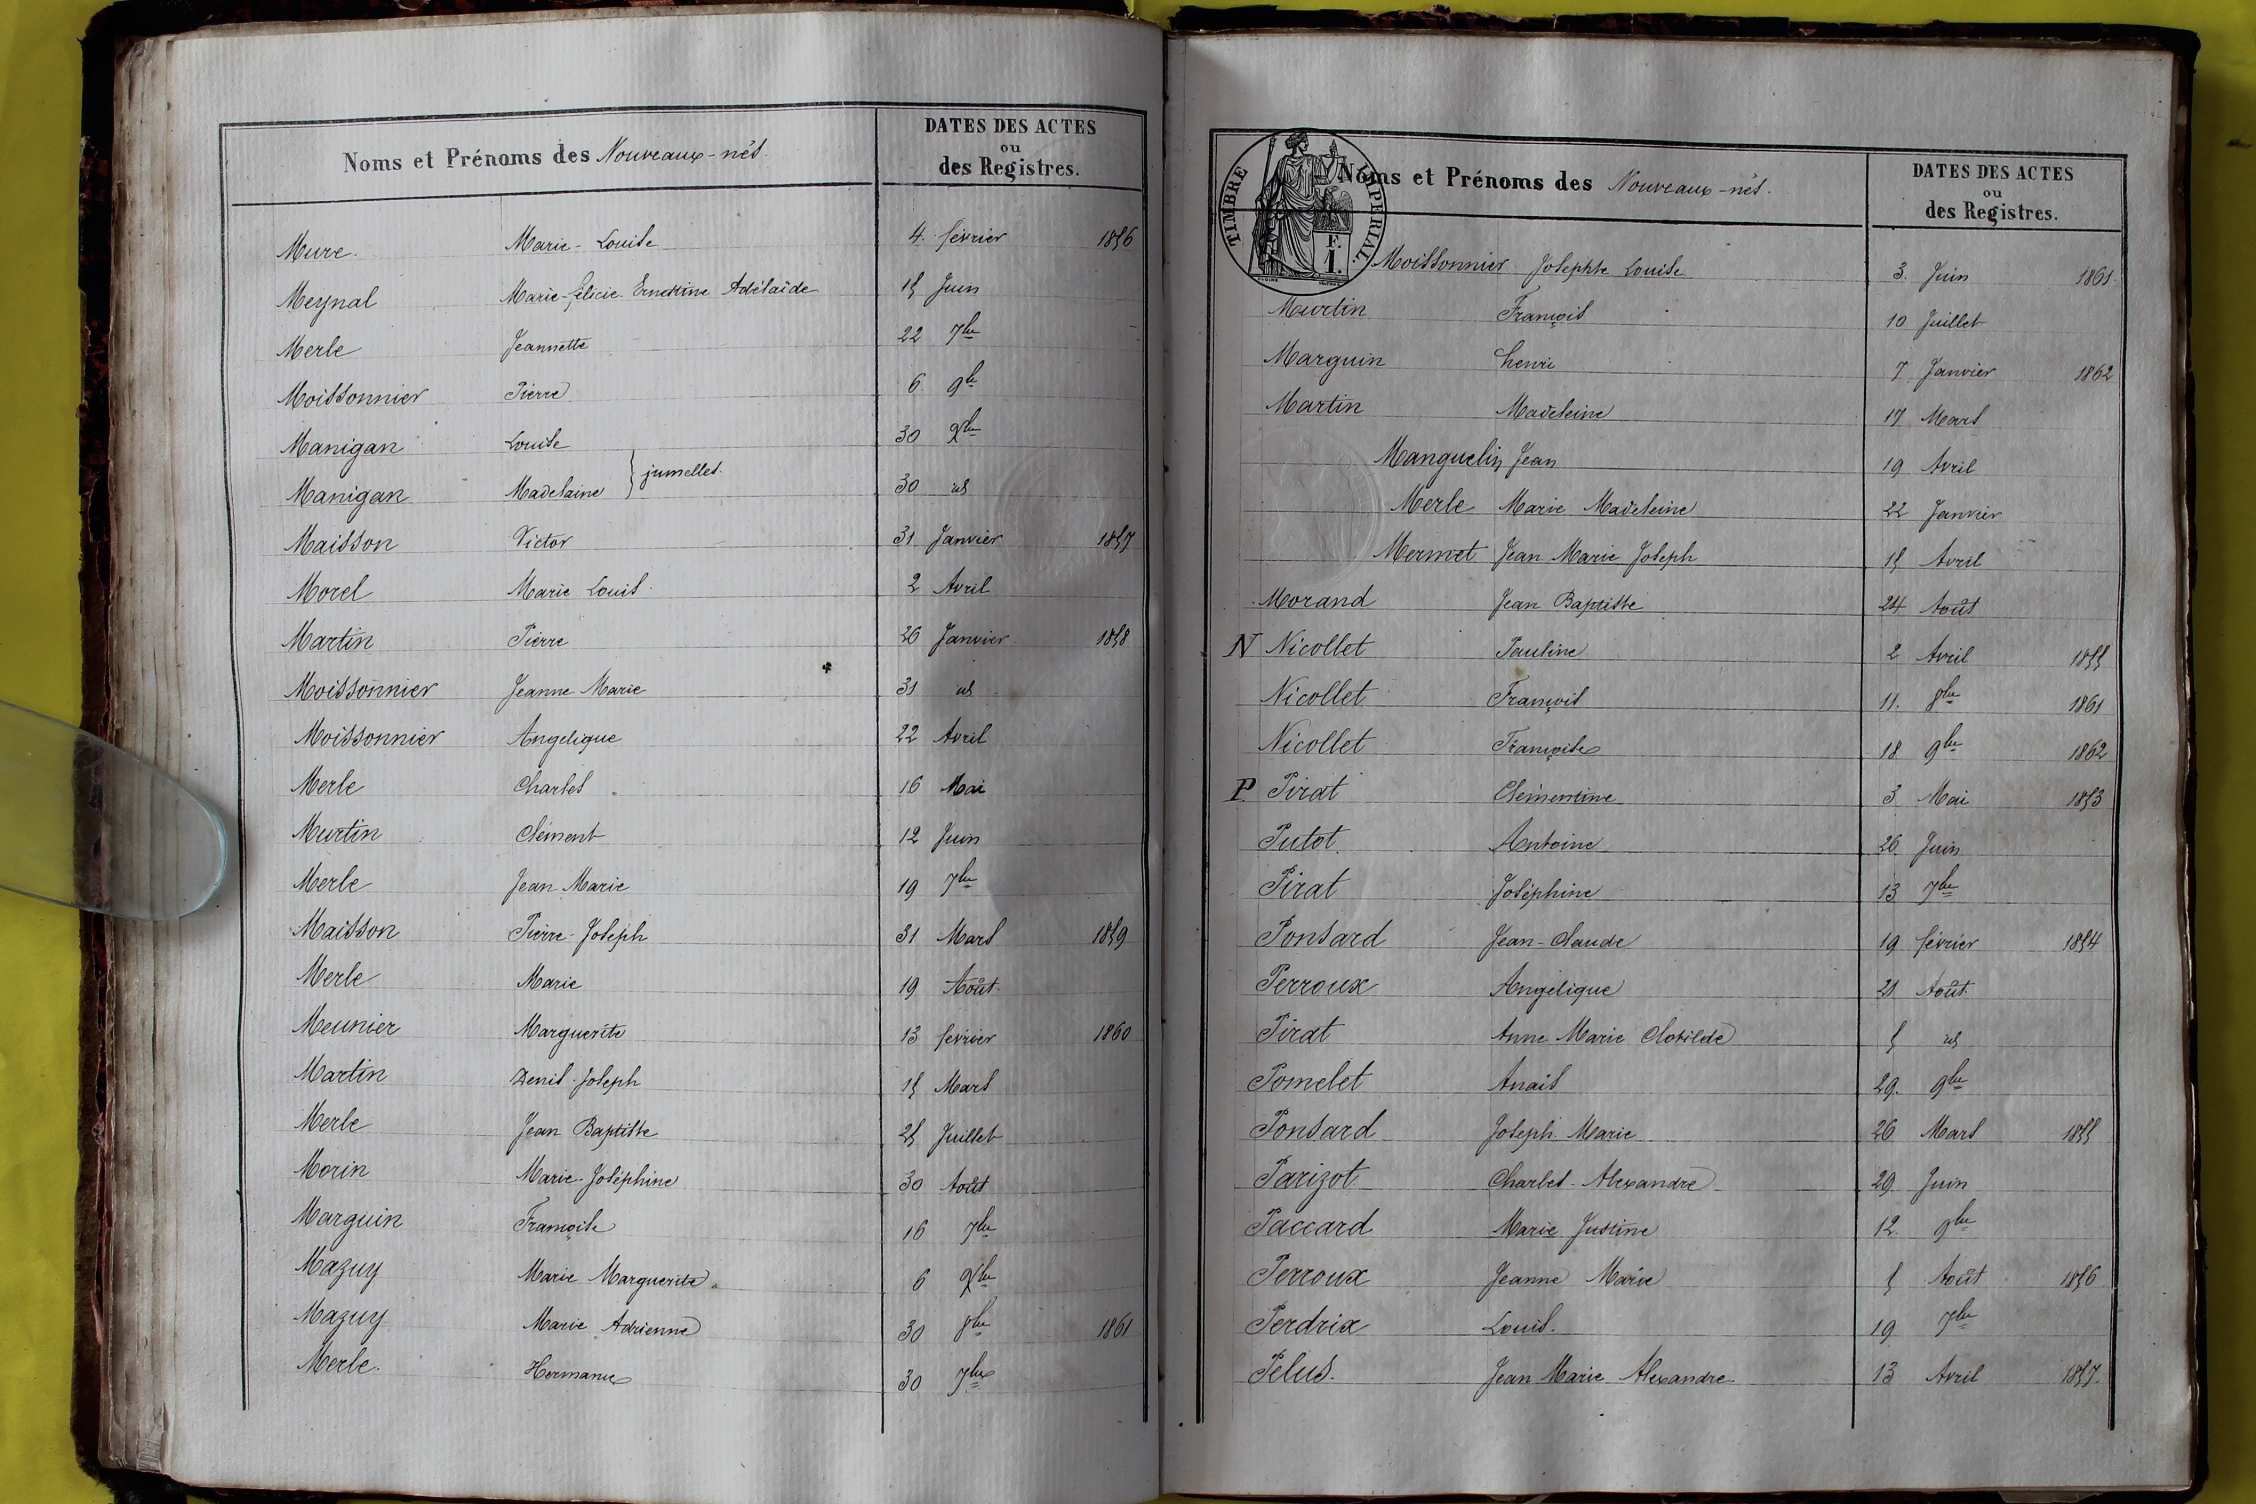 Noms et Prénoms des Nouveaux-nés.
DATES DES ACTES
ou
des Registres.
Mure. Marie-Louise 4. février 1856
Meynal Marie-félicie Ernestine Adélaïde 15 Juin
Merle Jeannette 22 7bre
Moissonnier Pierre 6 9bre
Manigan Louise 30 Xbre
jumelles.
Manigan Madelaine 30 id
Maisson Victor 31 Janvier 1857
Morel Marie Louis. 2 Avril
Martin Pierre 26 Janvier 1858
Moissonnier Jeanne Marie 31 id
Moissonnier Angelique 22 Avril
Merle Charles 16 Mai
Murtin Clément 12 Juin
Merle Jean Marie 19 7bre
Maisson Pierre-Joseph 31 Mars 1859
Merle Marie 19 Août
Meunier Marguerite 13 février 1860
Martin Denis-Joseph 15 Mars
Merle Jean Baptiste 25 Juillet
Morin Marie-Joséphine 30 Août
Marguin Françoise 16 7bre
Mazuy Marie Marguerite 6 Xbre
Mazuy Marie Adrienne 30 8bre 1861
Merle. 30 7bre
TIMBRE IMPERIAL.
F.
1.
Noms et Prénoms des Nouveaux-nés.
DATES DES ACTES
ou
des Registres.
Moissonnier Josephte Louise 3. Juin 1861
Murtin François 10 Juillet
Marguin henri 7 Janvier 1862
Martin Madeleine 17 Mars
Manguelin Jean 19 Avril
Merle Marie Madeleine 22 Janvier
Mermet Jean Marie Joseph 15 Avril
Morand Jean Baptiste 24 Août
N Nicollet Pauline 2 Avril 1855
Nicollet François 11. 8bre 1861
Nicollet Françoise 18 9bre 1862
P Pirat Clémentine 3 Mai 1853
Putot. Antoine 26 Juin
Pirat Joséphine 13 7bre
Ponsard Jean-Claude 19 février 1854
Perroux Angélique 21 Août
Pirat Anne Marie Clotilde 5 id
Pomelet Anaïs 29. 9bre
Ponsard Joseph Marie 26 Mars 1855
Parizot Charles-Alexandre 29. Juin
Paccard Marie Justine 12. 9bre
Perroux Jeanne Marie 5 Août 1856
Perdrix Louis. 19 7bre
Pelus. Jean Marie Alexandre 13 Avril 1857.